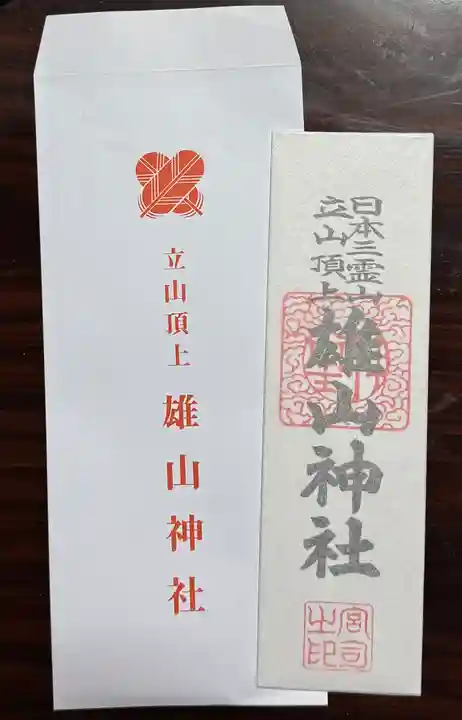 立山頂上
雄山神社
日本三霊山
立山頂上
雄山神社
宮司
之印